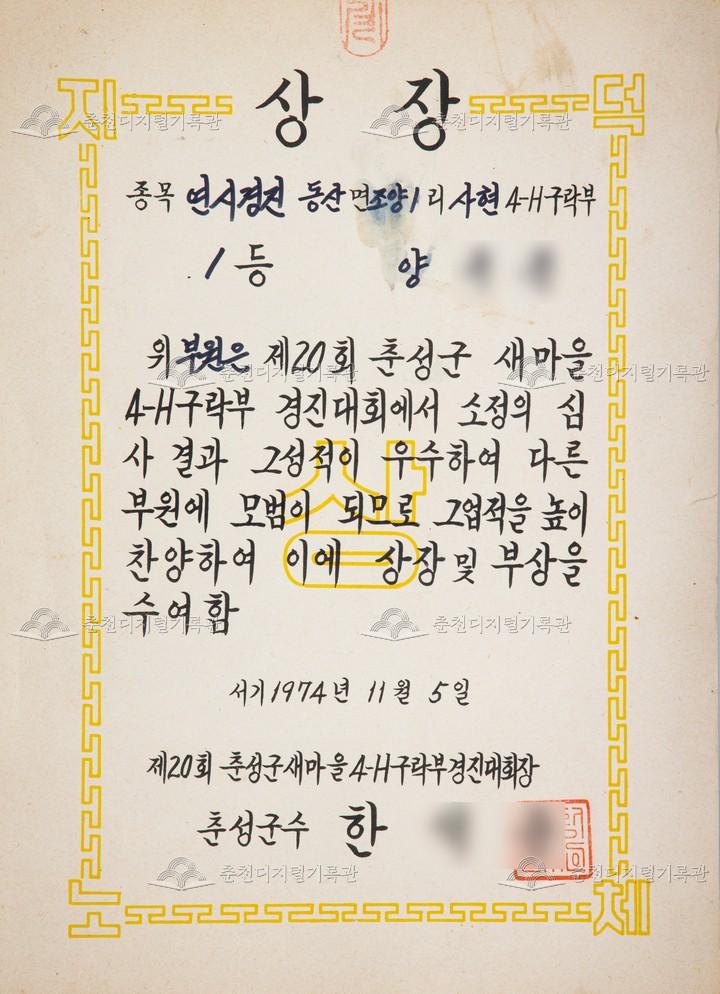 지 상 장 덕
종목 연시경진 동산면조양1리 사현 4-H구락부
1등 양
위 부원은 제20회 춘성군 새마을
4-H구락부 경진대회에서 소정의 심
사 결과 그성적이 우수하여 다른
부원에 모범이 되므로 그업적을 높이
찬양하여 이에 상장 및 부상을
수여함
상
서기 1974년 11월 5일
제20회 춘성군새마을4-H구락부경진대회장
춘성군수 한
노 체
춘천디지털기록관
춘천디지털기록관
춘천디지털기록관
춘천디지털기록관
춘천디지털기록관
춘천디지털기록관
춘천디지털기록관
춘천디지털기록관